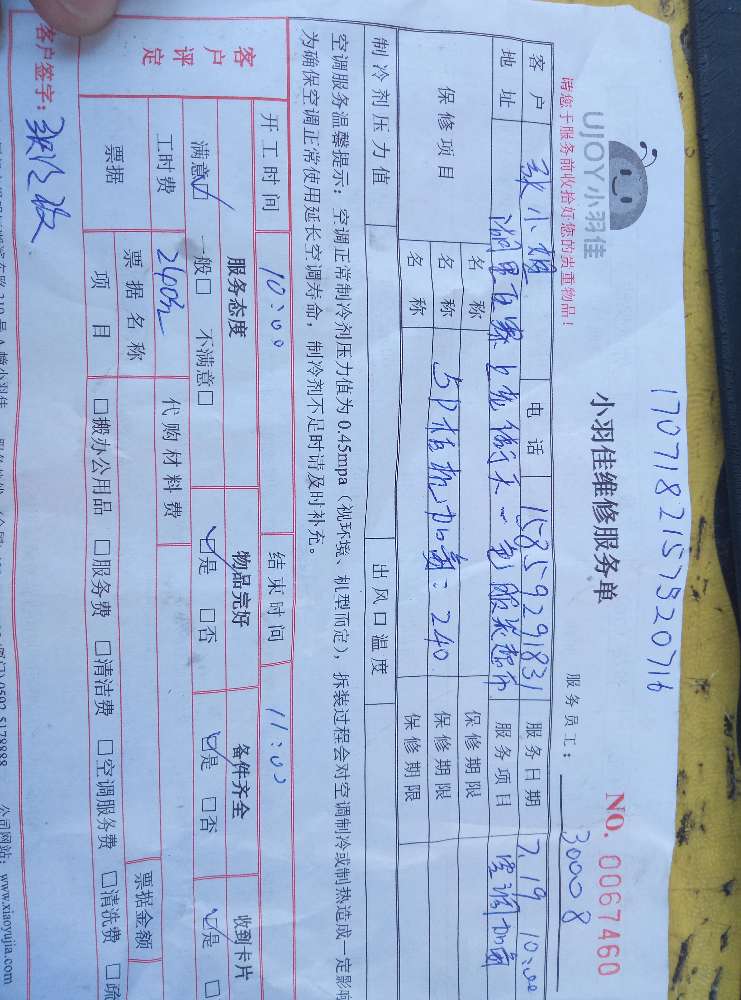 170718215920716
UJOY小羽佳
请您于服务前收拾好您的贵重物品！
小羽佳维修服务单
NO. 0067460
服务员工： 30008
客户 小姐 电话 15859291831 服务日期 7.19 10:00
地址 服务项目 空调加氟
保修项目 名称 保修期限
名称 5P柜机加氟：240 保修期限
名称 保修期限
制冷剂压力值 出风口温度
空调服务温馨提示：空调正常制冷剂压力值为 0.45mpa（视环境、机型而定），拆装过程会对空调制冷或制热造成一定影响
为确保空调正常使用延长空调寿命，制冷剂不足时请及时补充。
开工时间 10:00 结束时间 11:00
客户评定
服务态度 物品完好 备件齐全 收到卡片
满意☑ 一般□ 不满意□ ☑是 □否 ☑是 □否 ☑是 □
工时费 240元 代购材料费
票据 票据名称 票据金额
项目 □搬办公用品 □服务费 □清洁费 □空调服务费 □清洗费 □疏
客户签字：
0592-5178888 公司网站：www.xiaoyujia.com